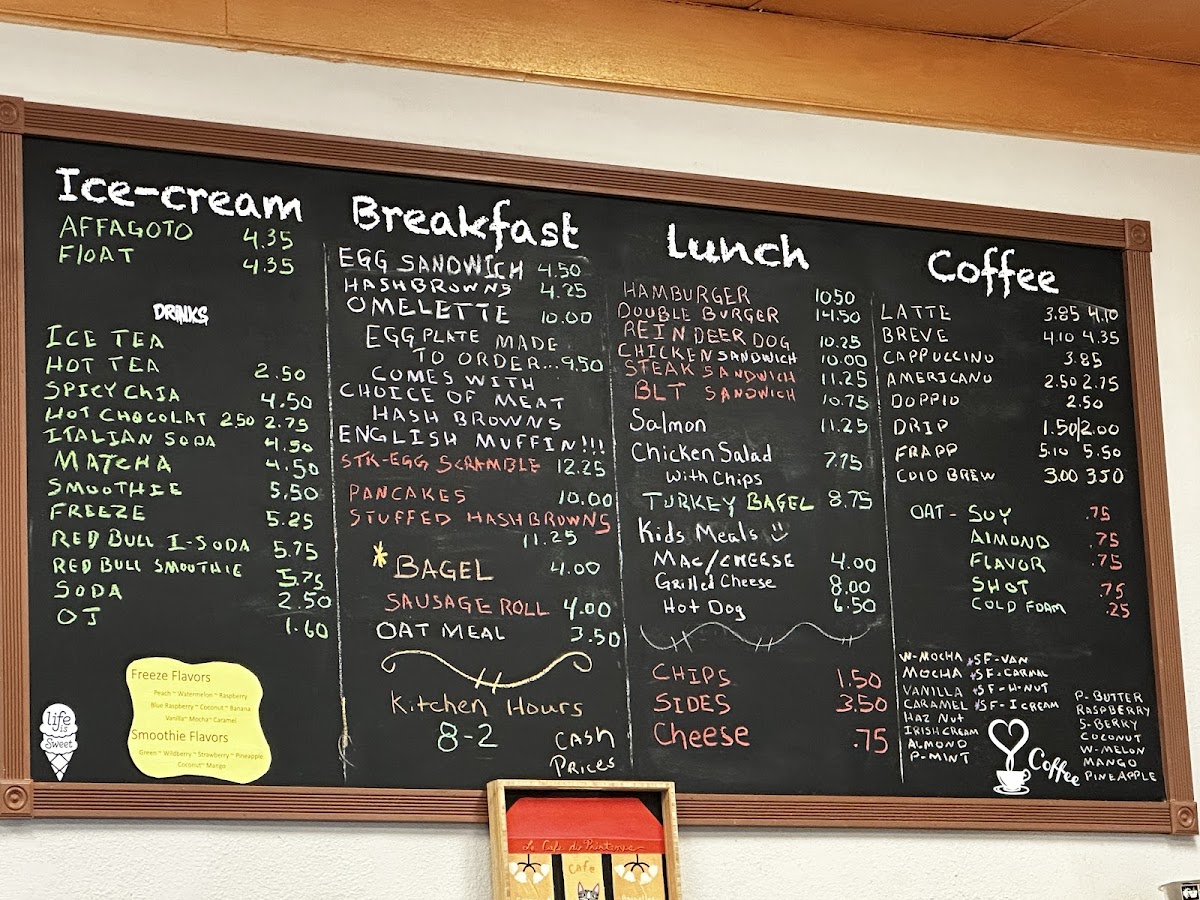 Ice-cream
AFFAGOTO 4.35
FLOAT 4.35
DRINKS
ICE TEA
HOT TEA 2.50
SPICY CHIA 4.50
HOT CHOCOLAT 2.50 2.75
ITALIAN SODA 4.50
MATCHA 4.50
SMOOTHIE 5.50
FREEZE 5.25
RED BULL I-SODA 5.75
RED BULL SMOOTHIE 5.75
SODA 2.50
OJ 1.60
Freeze Flavors
Peach ~ Watermelon ~ Raspberry
Blue Raspberry ~ Coconut ~ Banana
Vanilla ~ Mocha ~ Caramel
Smoothie Flavors
Green ~ Wildberry ~ Strawberry ~ Pineapple
Coconut ~ Mango
life
is
Sweet
Breakfast
EGG SANDWICH 4.50
HASHBROWNS 4.25
OMELETTE 10.00
EGG PLATE MADE
TO ORDER...9.50
COMES WITH
CHOICE OF MEAT
HASH BROWNS
ENGLISH MUFFIN!!!
STK-EGG SCRAMBLE 12.25
PANCAKES 10.00
STUFFED HASHBROWNS
11.25
* BAGEL 4.00
SAUSAGE ROLL 4.00
OAT MEAL 3.50
Kitchen Hours
8-2
CASH
PRICES
Lunch
HAMBURGER 10.50
DOUBLE BURGER 14.50
REINDEER DOG 10.25
CHICKEN SANDWICH 10.00
STEAK SANDWICH 11.25
BLT SANDWICH 10.75
Salmon 11.25
Chicken Salad 7.75
With Chips
TURKEY BAGEL 8.75
Kids Meals
MAC/CHEESE 4.00
Grilled Cheese 8.00
Hot Dog 6.50
CHIPS 1.50
SIDES 3.50
Cheese .75
Coffee
LATTE 3.85 4.10
BREVE 4.10 4.35
CAPPUCCINO 3.85
AMERICANO 2.50 2.75
DOPPIO 2.50
DRIP 1.50/2.00
FRAPP 5.10 5.50
COLD BREW 3.00 3.50
OAT - SOY .75
ALMOND .75
FLAVOR .75
SHOT .75
COLD FOAM .25
W-MOCHA *SF-VAN
MOCHA *SF-CARMAL
VANILLA *SF-H-NUT
CARAMEL *SF-I CREAM
HAZ NUT
IRISH CREAM
ALMOND
P-MINT
P-BUTTER
RASPBERRY
S-BERRY
COCONUT
W-MELON
MANGO
PINEAPPLE
Coffee
Cafe